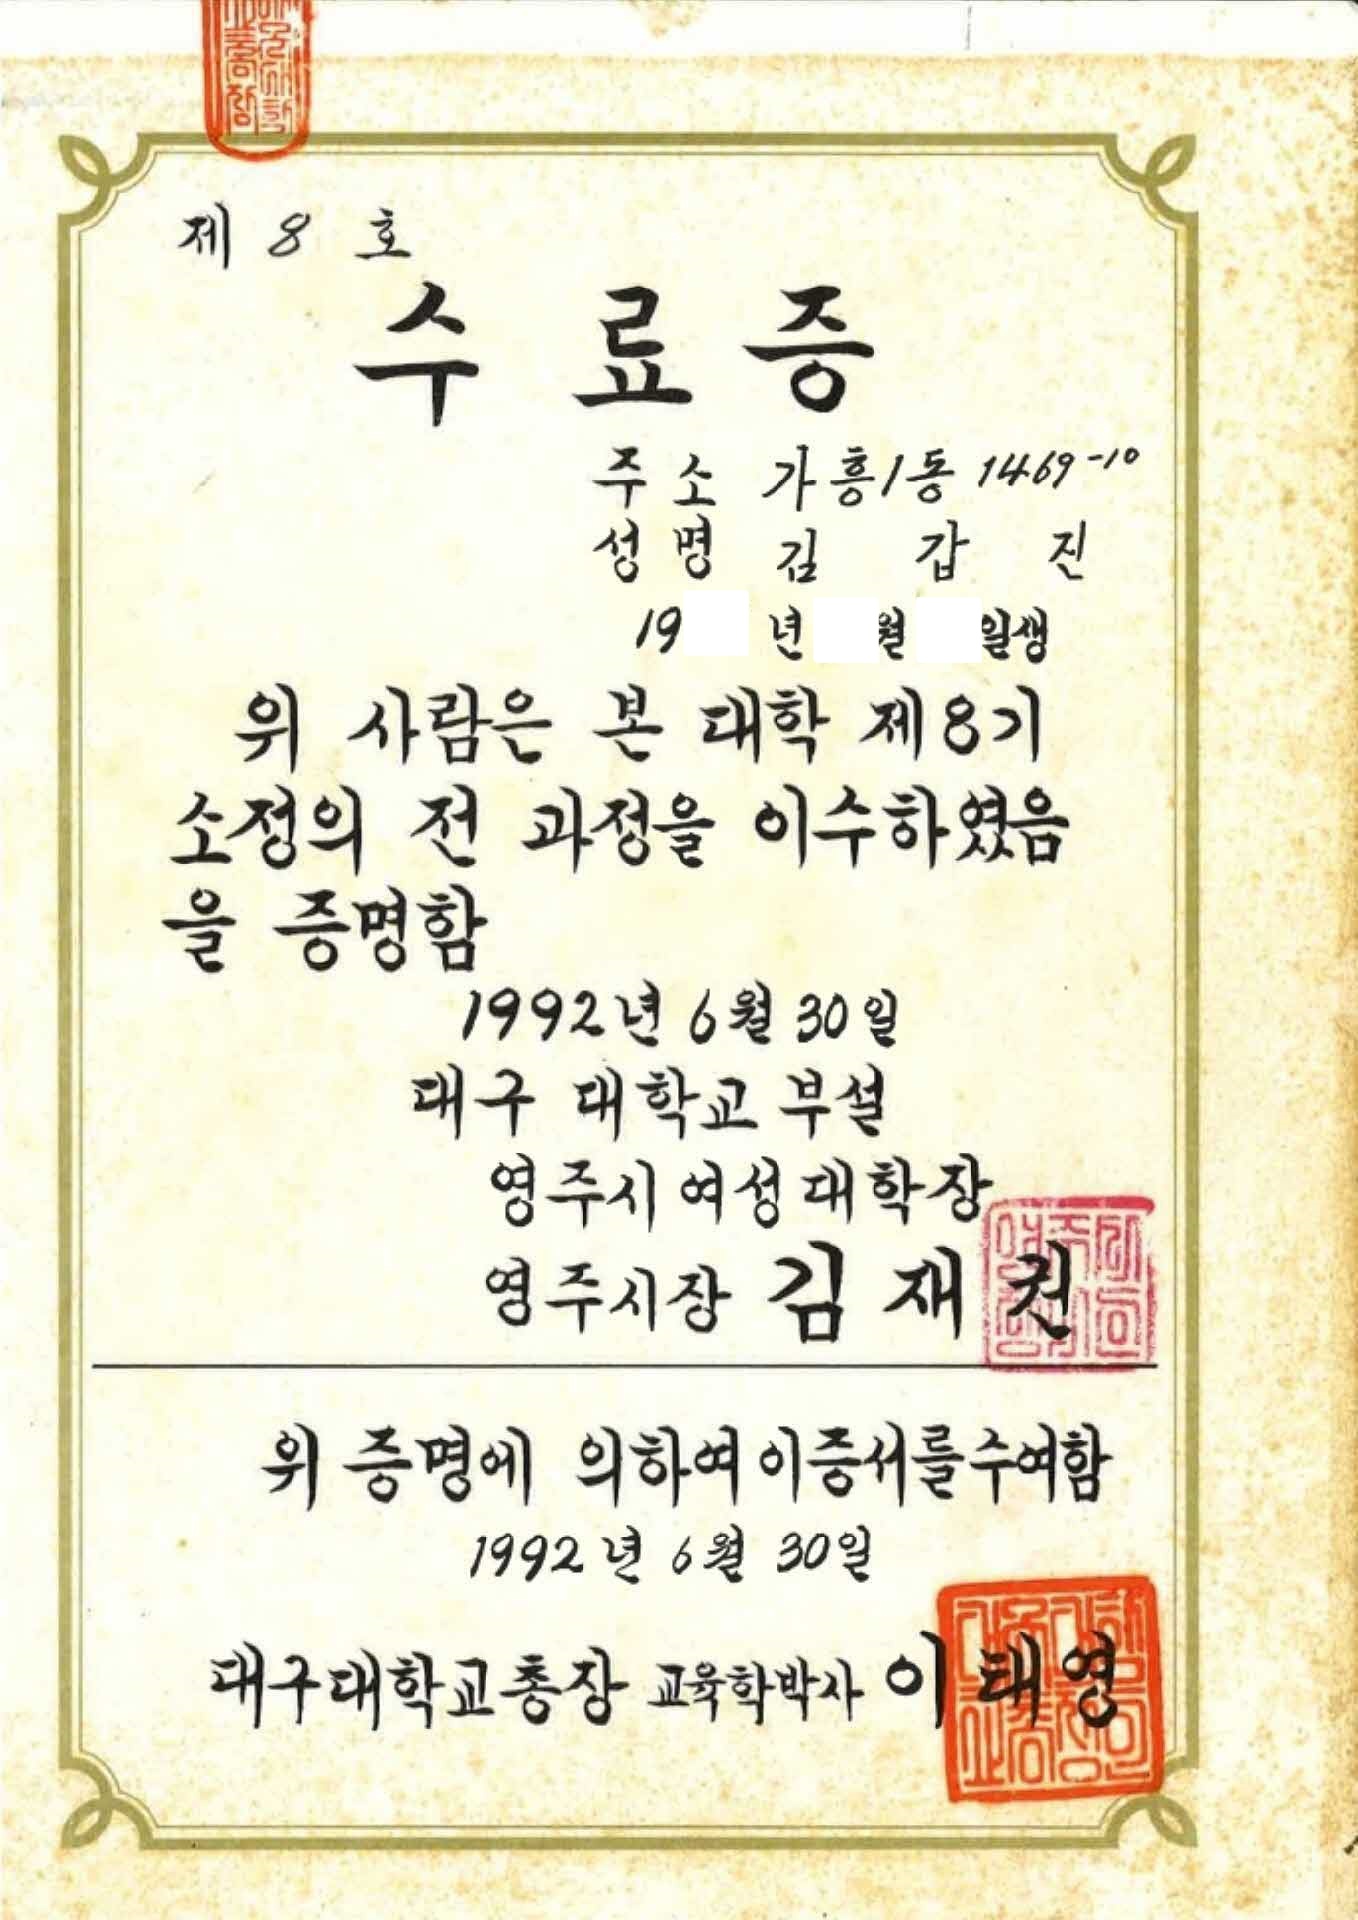 제 8 호
수 료 증
주 소 가 흥 1 동 1469-10
성 명 김 갑 진
19 년 월 일생
위 사람은 본 대학 제8기
소정의 전 과정을 이수하였음
을 증명함
1992년 6월 30일
대구 대학교 부설
영주시 여성대학장
영주시장 김 재 권
위 증명에 의하여 이증서를수여함
1992년 6월 30일
대구대학교총장 교육학박사 이태영